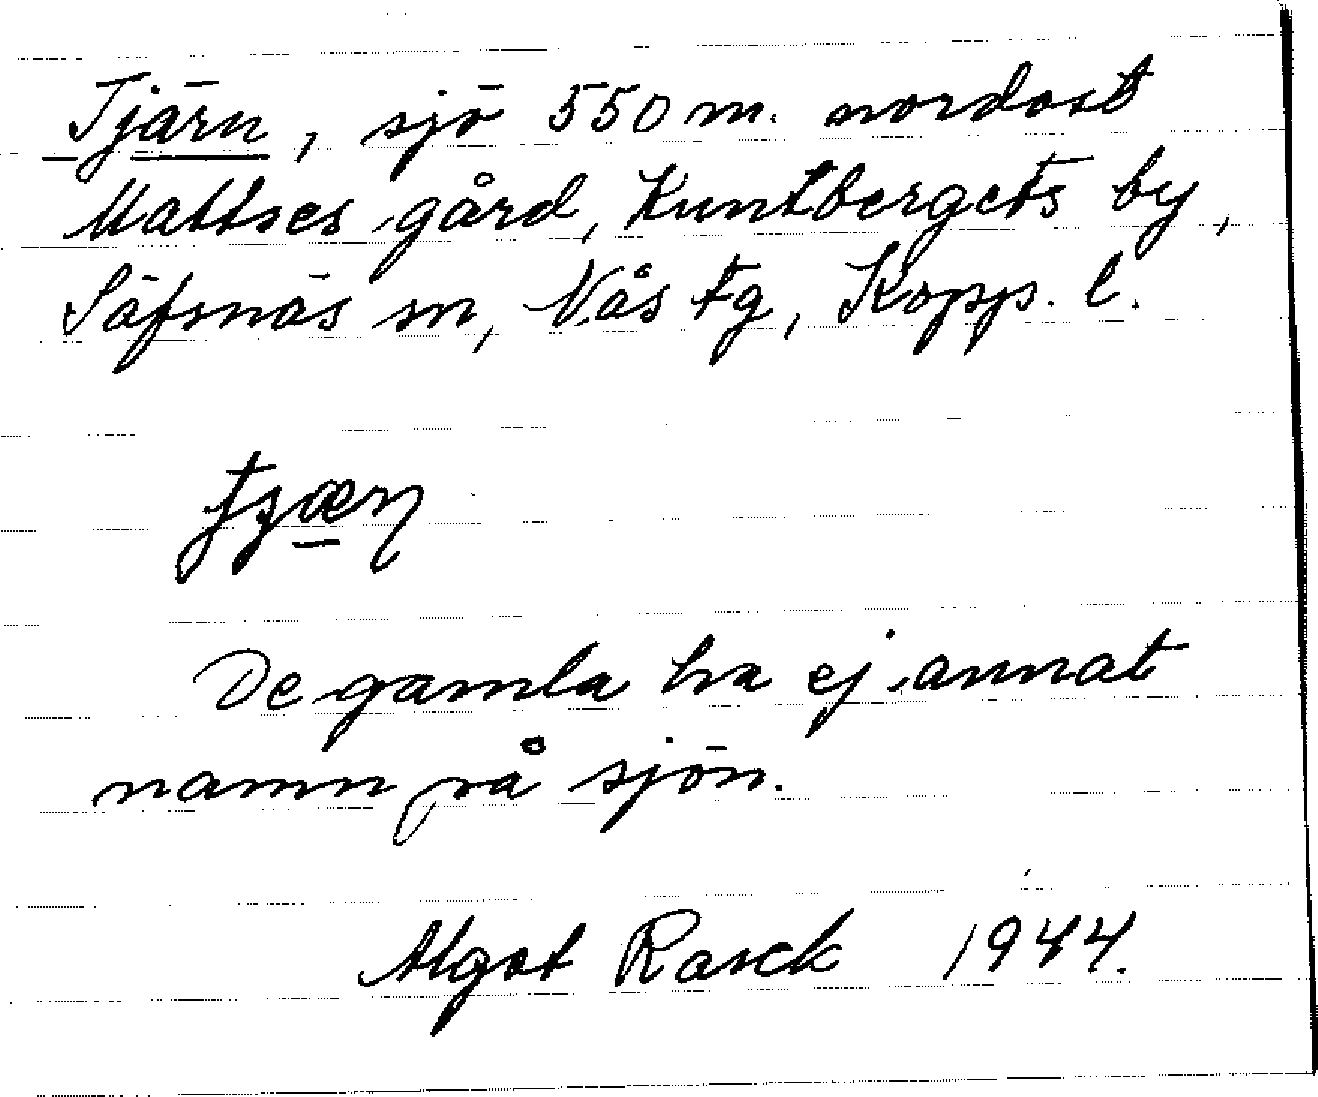 Tjärn, sjö 550 m. nordost
Mattses gård, Kuntbergets by,
Säfsnäs sn, Nås tg, Kopp. l.
De gamla ha ej annat
namn på sjön.
Algot Rasck 1944.